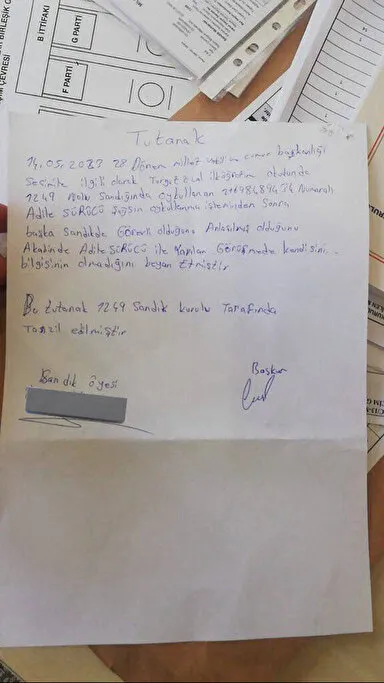 BİRLEŞİK O
B İTTİFAKI
G PARTİ
F PARTİ
İM ÇEVRESİ
Tutanak
14.05.2023 28 Dönem millet vekili ve cumur başkanlığı
Seçimile ilgili olarak Turgut Özal ilköğretim okulunda
1249 Nolu Sandığında oykullanan Numaralı
Adile SÜRÜCÜ Şahsın oykullanma işleminden Sonra
başka Sandıkda Görevli olduğunu Anlaşılmış olduğunu
Akabinde Adile SÜRÜCÜ ile Yapılan Görüşmede kendisinin
bilgisinin olmadığını beyan Etmiştir
Bu tutanak 1249 Sandık kurulu Tarafında
Tanzil edilmiştir
Sandık Üyesi
Başkan